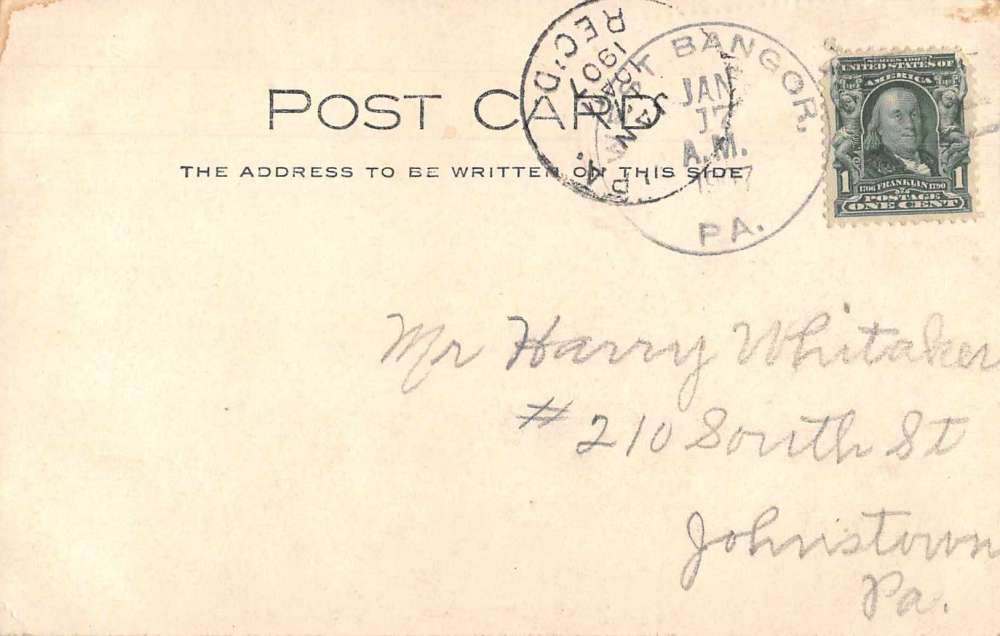 POST CARD
THE ADDRESS TO BE WRITTEN ON THIS SIDE
REC'D.
1907
JAN
PA.
BANGOR,
JAN
17
A.M.
PA.
SERIES 1902
UNITED STATES OF
AMERICA
1 1
1706 FRANKLIN 1790
POSTAGE
ONE CENT
Mr Harry Whitaker
# 210 South St
Johnstown
Pa.